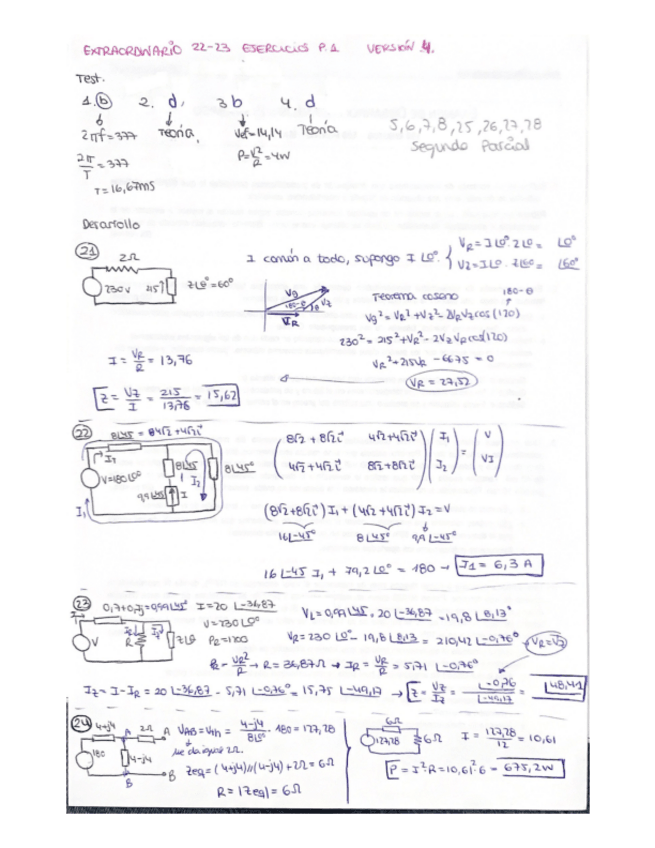 EXTRAORDINARIO 22-23 EJERCICIOS P.1 VERSIÓN 4.
Test.
1.b 2. d, 3 b 4. d
2πf=377 Teoría, Vef=14,14 Teoría
P=V²/R=4W
2π/T=377
T=16,67ms
5,6,7,8,25,26,27,28
Segundo Parcial
Desarrollo
21
2Ω
230V 215 Z∟θ°=60°
I común a todo, supongo I∟0°.
VR=I∟0°·2∟0= ∟0°
VZ=I∟0·Z∟60= ∟60°
Vg 180-θ θ VZ
VR
Teorema coseno 180-θ
Vg²=VR²+VZ²-2VRVZcos(120)
230²=215²+VR²-2VZVRcos(120)
VR²+215VR-6675=0
VR=27,52
I=VR/R=13,76
Z=VZ/I=215/13,76=15,62
22
8∟45=4√2+4√2i
I1
V=180∟0°
8∟45 8∟45°
I I2
9,9∟-45
I1
(8√2+8√2i 4√2+4√2i) (I1) = (V)
(4√2+4√2i 8√2+8√2i) (I2) (VI)
(8√2+8√2i)I1+(4√2+4√2i)I2=V
16∟45° 8∟45° 9,9∟-45°
16∟45 I1+79,2∟0°=180 → I1=6,3 A
23
0,7+0,7j=0,99∟45° I=20∟-36,87
V=230∟0°
PR=1200
I
V R IR IZ Z∟θ
VL=0,99∟45·20∟-36,87=19,8∟8,13°
VR=230∟0°-19,8∟8,13=210,42∟-0,76° → VR=VZ
PR=VR²/R → R=36,87Ω → IR=VR/R=5,71∟-0,76°
IZ=I-IR=20∟-36,87-5,71∟-0,76°=15,75∟-49,17 → Z=VZ/IZ=∟-0,76/∟-49,17=∟48,41
24
4+j4 2Ω A
A
180 4-j4
B B
VAB=Vth=4-j4/8∟0° 180=127,28
me da igual 2Ω.
Zeq=(4+j4)//(4-j4)+2Ω=6Ω
R=|Zeq|=6Ω
6Ω
127,28 6Ω
I=127,28/12=10,61
P=I²R=10,61²·6=675,2W